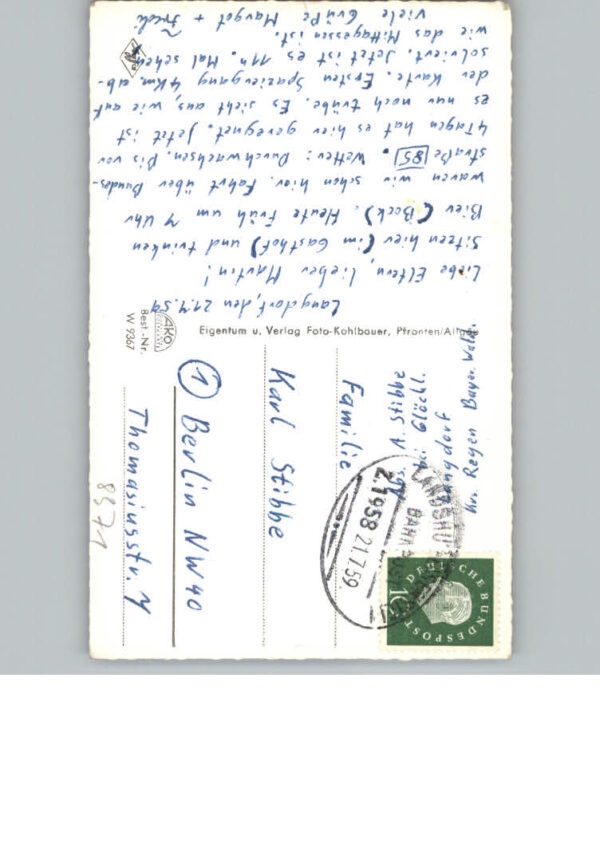 Langdorf, den 21.7.59
Liebe Eltern, lieber Martin!
Sitzen hier (im Gasthof) und trinken
Bier (Bock). Heute früh um 7 Uhr
waren wir schon hier. Fahrt über Bundes-
straße 85. Wetter: Durchwachsen. Bis vor
4 Tagen hat es hier geregnet. Jetzt ist
es nur noch trübe. Es sieht aus, wie auf
der Karte. Ersten Spaziergang 4 km. ab-
solviert. Jetzt ist es 11h. Mal sehen
wie das Mittagessen ist.
Viele Grüße Margot + Fredi
Agfa
Eigentum u. Verlag Foto-Kohlbauer, Pfronten/Allgäu
AKO
Best.-Nr.
W 9367
Abs. A. Stibbe
bei Glöckl.
Langdorf
Krs. Regen Bayer. Wald.
Familie
Karl Stibbe
1 Berlin NW 40
Thomasiusstr. 7
DEUTSCHE BUNDESPOST
10
LANDSHUT
BAHNPOST
Z.1958 21.7.59
8571